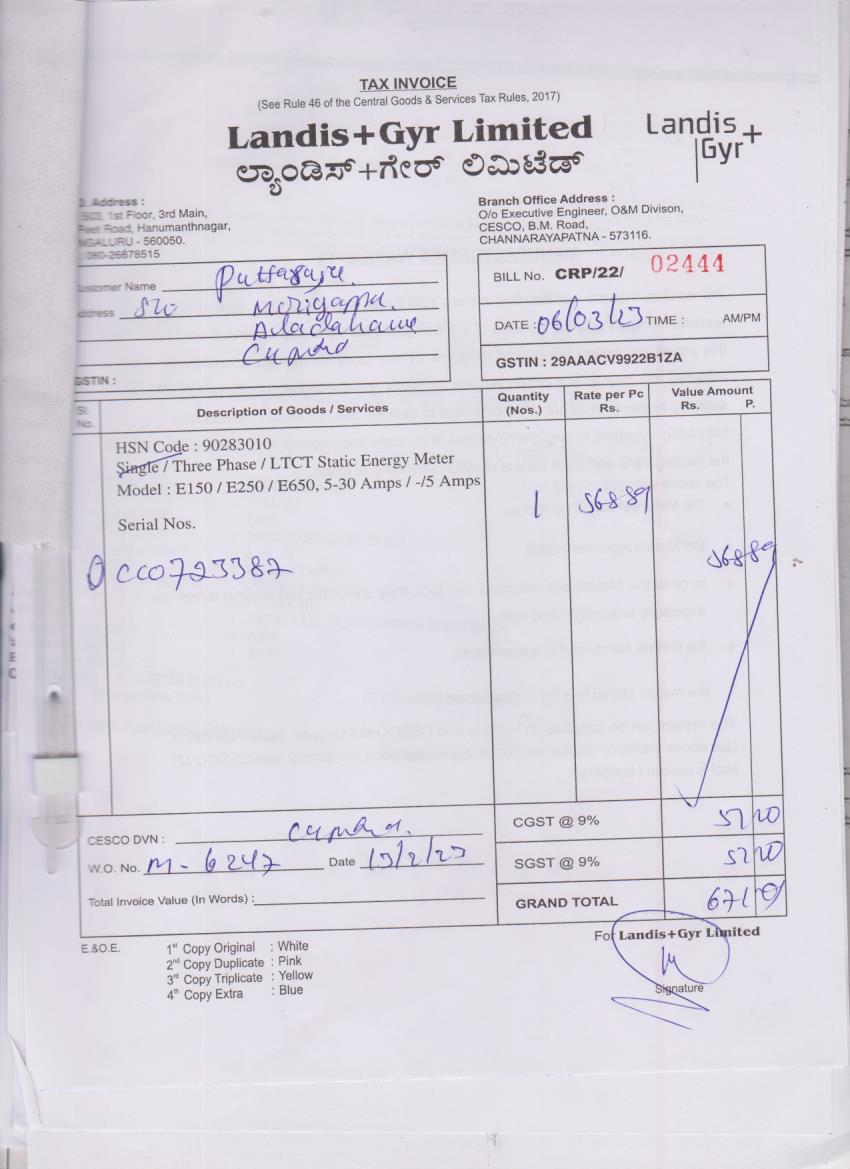 TAX INVOICE
(See Rule 46 of the Central Goods & Services Tax Rules, 2017)
Landis+Gyr Limited
Landis+
Gyr
ಲ್ಯಾಂಡಿಸ್+ಗೇರ್ ಲಿಮಿಟೆಡ್
Address :
1st Floor, 3rd Main,
Road, Hanumanthnagar,
- 560050.
080-26678515
Branch Office Address :
O/o Executive Engineer, O&M Divison,
CESCO, B.M. Road,
CHANNARAYAPATNA - 573116.
Customer Name Puttaraju.
Address S/o
BILL No. CRP/22/ 02444
DATE : 06/03/23 TIME : AM/PM
GSTIN : 29AAACV9922B1ZA
GSTIN :
Sl. No. Description of Goods / Services Quantity (Nos.) Rate per Pc Rs. Value Amount Rs. P.
HSN Code : 90283010
Single / Three Phase / LTCT Static Energy Meter
Model : E150 / E250 / E650, 5-30 Amps / -/5 Amps
1 568.89
Serial Nos.
568.89
CC0723387
CESCO DVN :
CGST @ 9% 51 20
W.O. No. M-6247 Date 13/2/23
SGST @ 9% 51 20
Total Invoice Value (In Words) :
GRAND TOTAL 671
For Landis+Gyr Limited
E.&O.E. 1st Copy Original : White
2nd Copy Duplicate : Pink
3rd Copy Triplicate : Yellow
4th Copy Extra : Blue
Signature